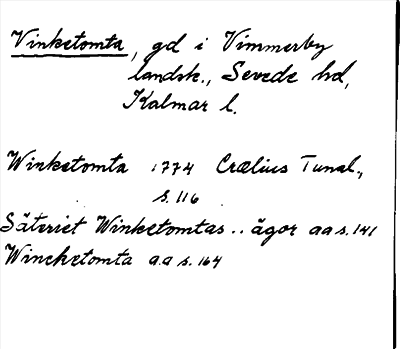 Vinketomta, gd i Vimmerby
landsk., Sevede hd,
Kalmar l.
Winketomta 1774 Crælius Tunal.,
s. 116
Säteriet Winketomtas .. ägor aa s. 141
Winchetomta aa s. 164